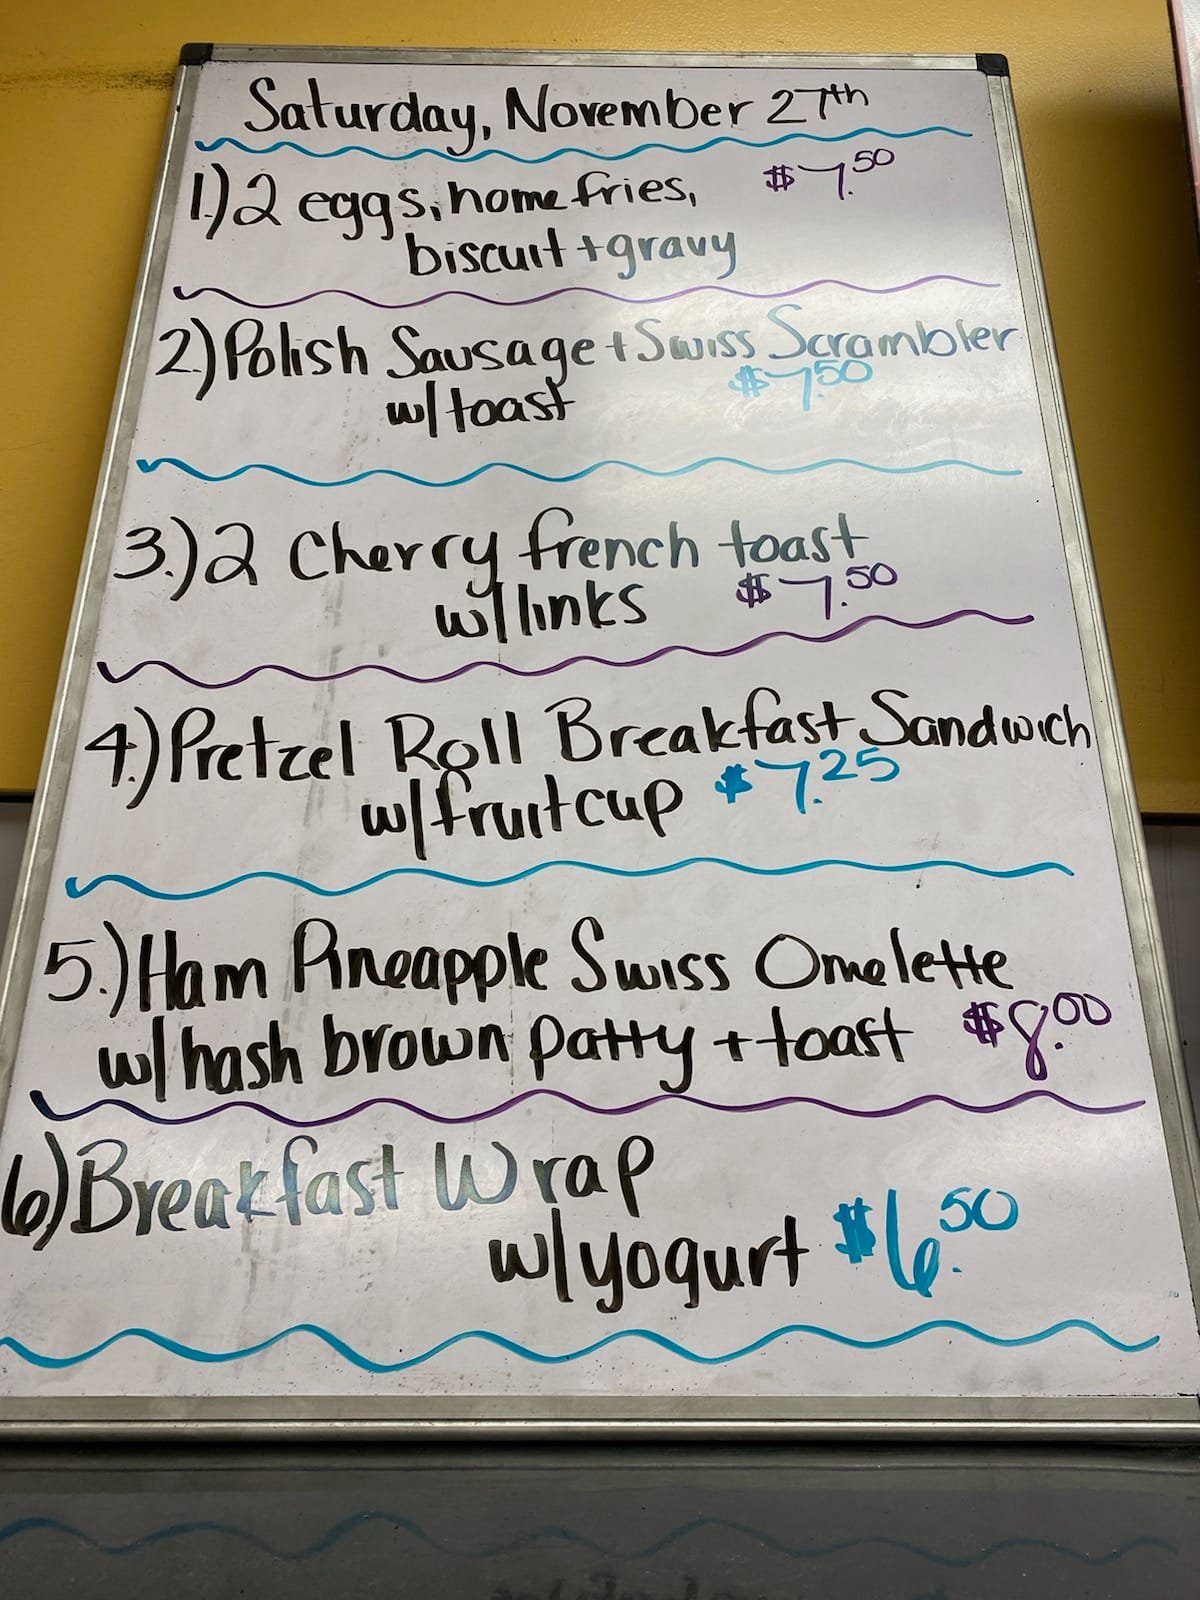 Saturday, November 27th
1.) 2 eggs, home fries, $7.50
biscuit + gravy
2.) Polish Sausage + Swiss Scrambler
w/ toast $7.50
3.) 2 Cherry french toast
w/ links $7.50
4.) Pretzel Roll Breakfast Sandwich
w/ fruit cup $7.25
5.) Ham Pineapple Swiss Omelette
w/ hash brown patty + toast $8.00
6.) Breakfast Wrap
w/ yogurt $6.50